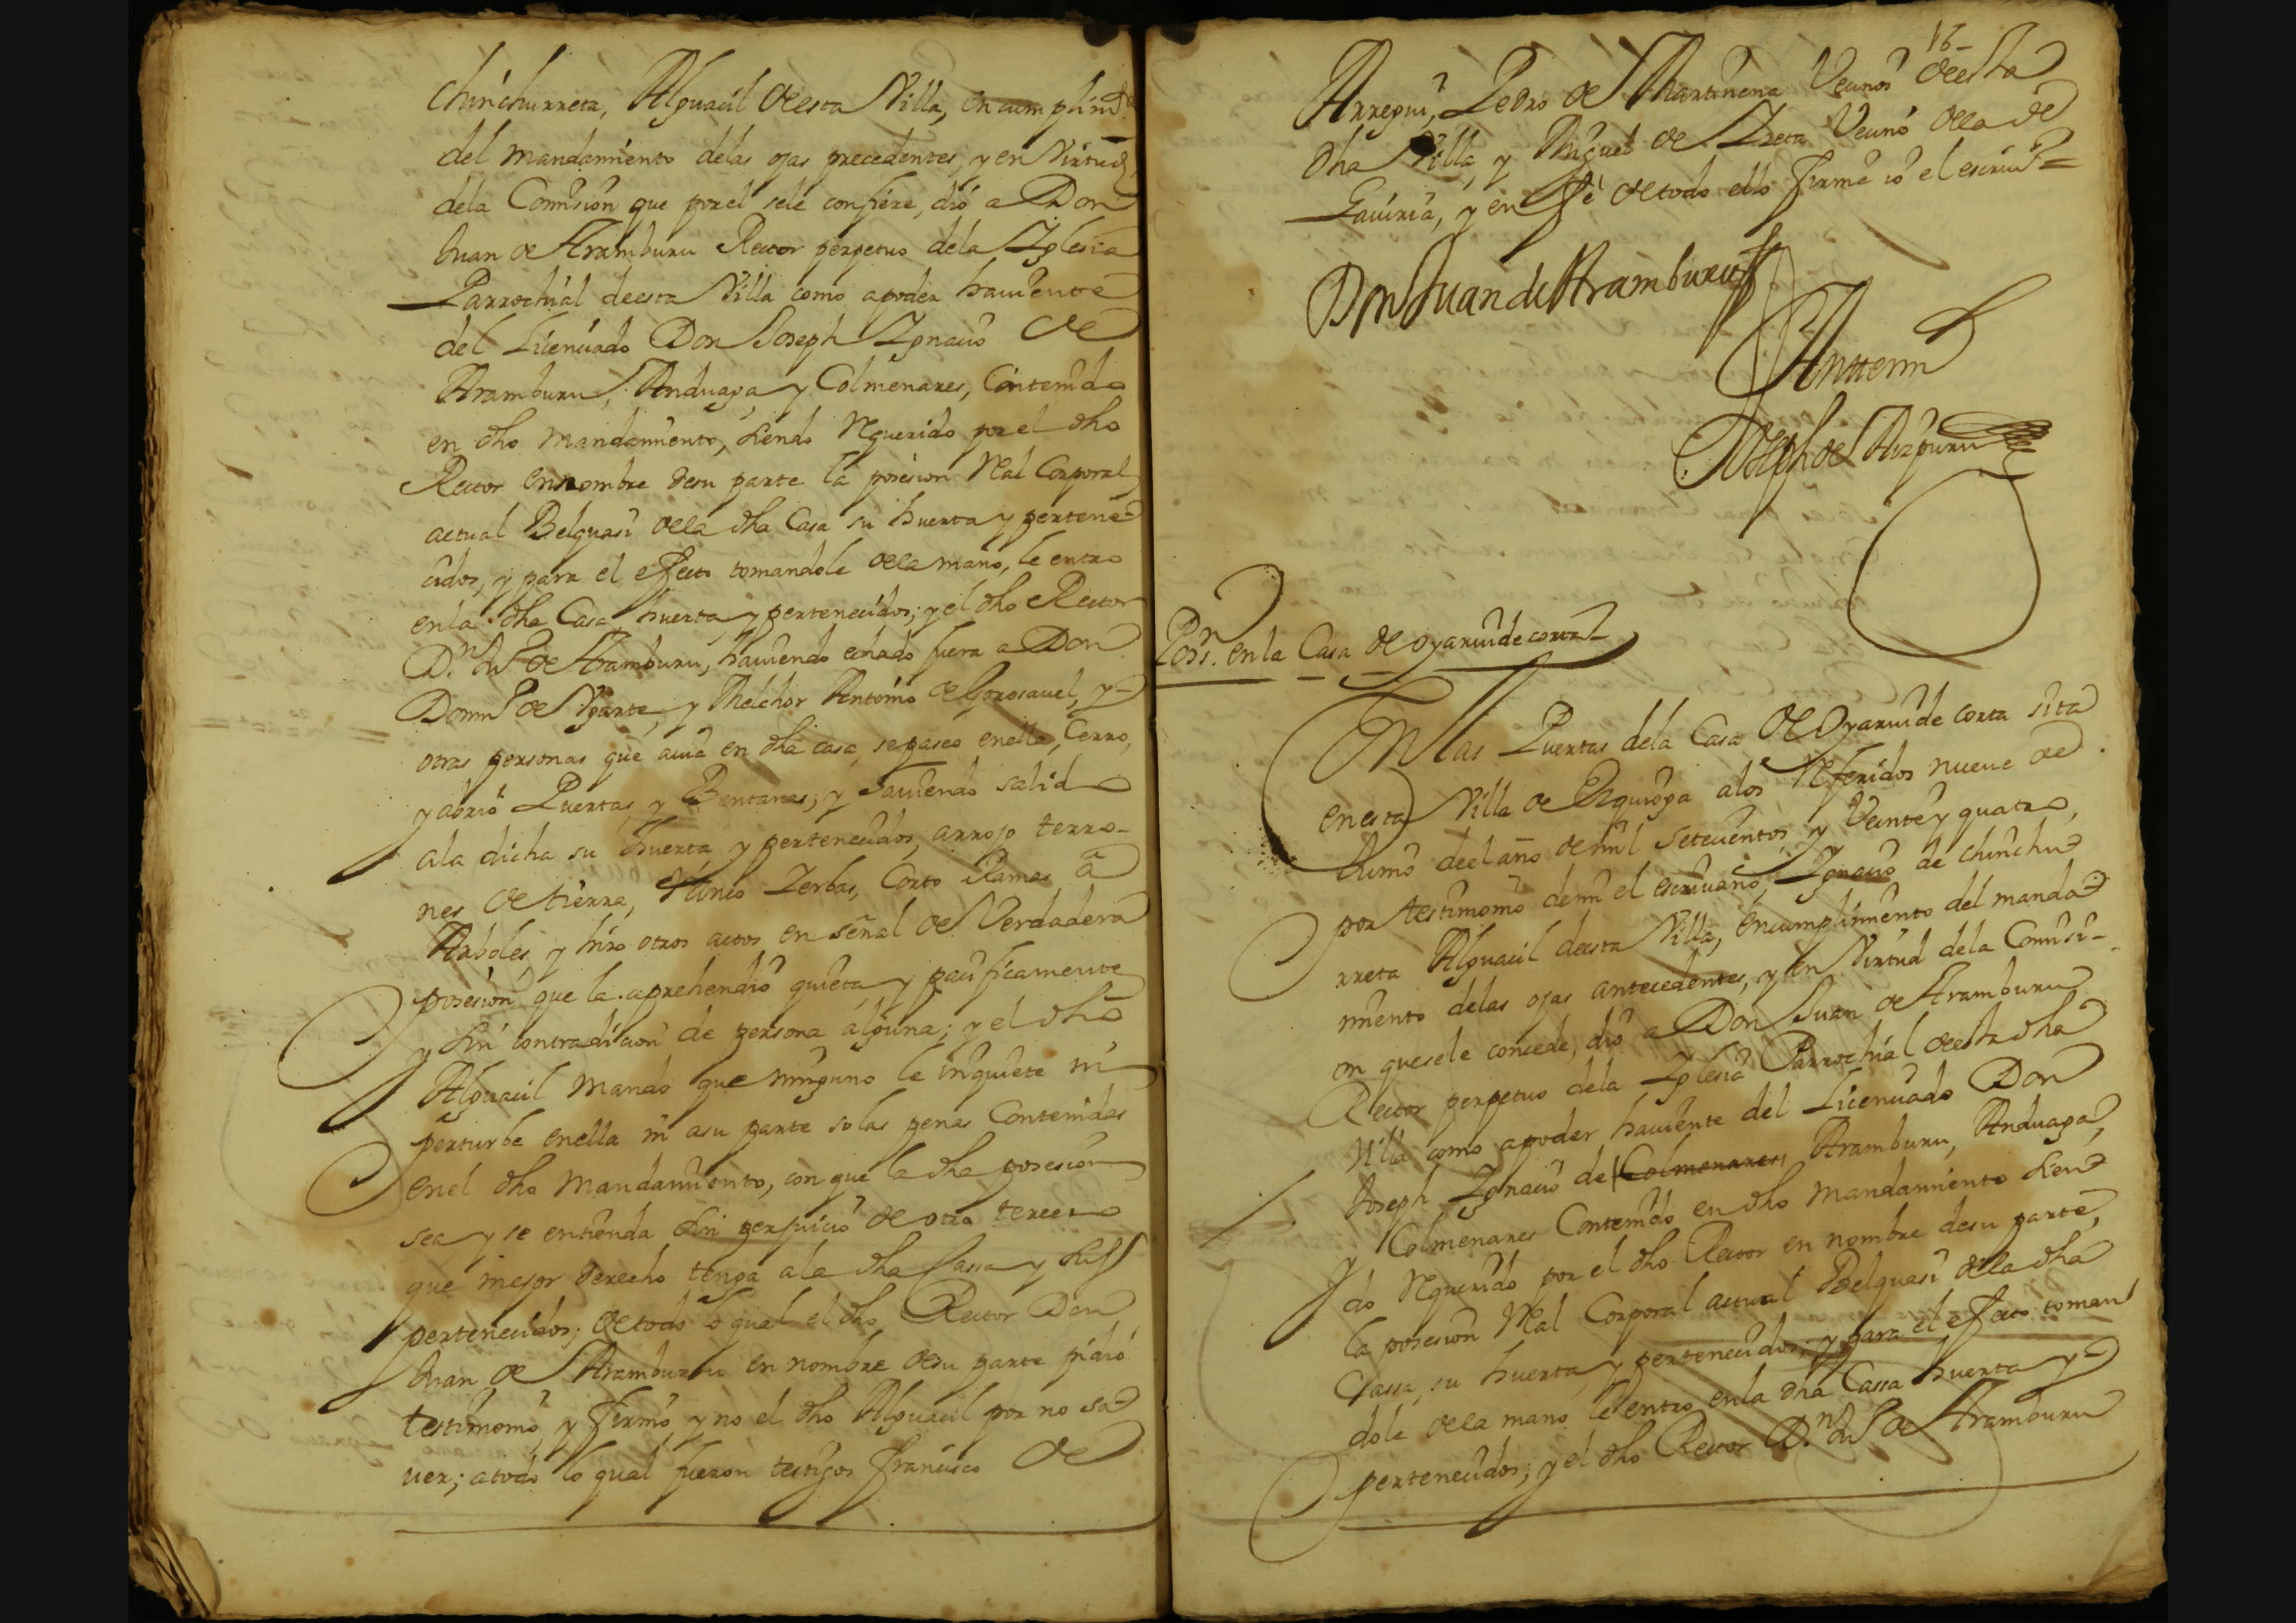 Chinchurreta, Alguacil de esta Villa, en cumplimto
del mandamiento delas ojas precedentes, y en Virtud
dela Comision que por el sele confiere, dió a Don
Juan de Aramburu Rector perpetuo dela Iglesia
Parrochial deesta Villa como apoder haviente
del Licenciado Don Joseph Ignacio de
Aramburu, Anduaga y Colmenares, Contenido
en dho mandamiento, siendo requerido por el dho
Rector en nombre desu parte la posesion Real Corporal
actual Belquasi dela dha Casa su huerta y pertene
cidos, y para el efecto tomandole dela mano, le entro
enla dha Casa huerta y pertenecidos; y el dho Rector
Dn Jun de Aramburu, haviendo echado fuera a Don
Domingo de Ugarte, y Melchor Antonio de Gorosavel, y
otras personas que avia en dha casa, se paseo enella, Cerro,
y abrió Puertas, y Bentanas; y haviendo salido
ala dicha su huerta y pertenecidos, arrojo terro-
nes de tierra, Arranco Yerbas, Corto Ramas a
Arboles, y hizo otros actos en señal de Verdadera
posesion que la aprehendió quieta y pacificamente
y sin contradicion de persona alguna; y el dho
Alguacil Mando que ninguno le inquiete ni
perturbe enella ni asu parte so las penas Contenidas
enel dho Mandamiento, con que la dha posesion
sea y se entienda sin perjuicio de otro tercero
que mejor derecho tenga ala dha Cassa y sus
pertenecidos; de todo lo qual el dho Rector Don
Juan de Aramburu en nombre desu parte pidió
testimonio, y firmó, y no el dho Alguacil por no sa
ver; atodo lo qual fueron testigos Francisco de
16-
Arregui, Pedro de Martinena Vecinos deesta
dha Villa, y Miguel de Vecino dela de
Gaviria, y en fé de todo ello firmé io el escriuo=
Don Juan de Aramburu
Antemi
Joseph de Aizpuru
Poss.n en la Casa de Oyarvide corta-
En las Puertas dela Casa de Oyarvide corta sita
enesta Villa de Ezquioga alos referidos nueve de
Junio deel año de mil setecientos y Veinte y quatro,
por testimonio demi el escrivano, Ignacio de Chinchu
rreta Alguacil deesta Villa, encumplimiento del manda
miento delas ojas antecedentes, y en Virtud dela Comisi-
on quesele concede, dió a Don Juan de Aramburu
Rector perpetuo dela Iglesia Parrochial deesta dha
Villa como apoder haviente del Licenciado Don
Joseph Ignacio de Colmenares, Aramburu, Anduaga,
y Colmenares Contenido en dho mandamiento sien
do requerido por el dho Rector en nombre desu parte,
la posesion Real Corporal actual Belquasi dela dha
Cassa, su huerta, y pertenecidos; y para el efecto toman
dole dela mano le entro enla dha Cassa huerta y
pertenecidos; y el dho Rector Dn Jun de Aramburu